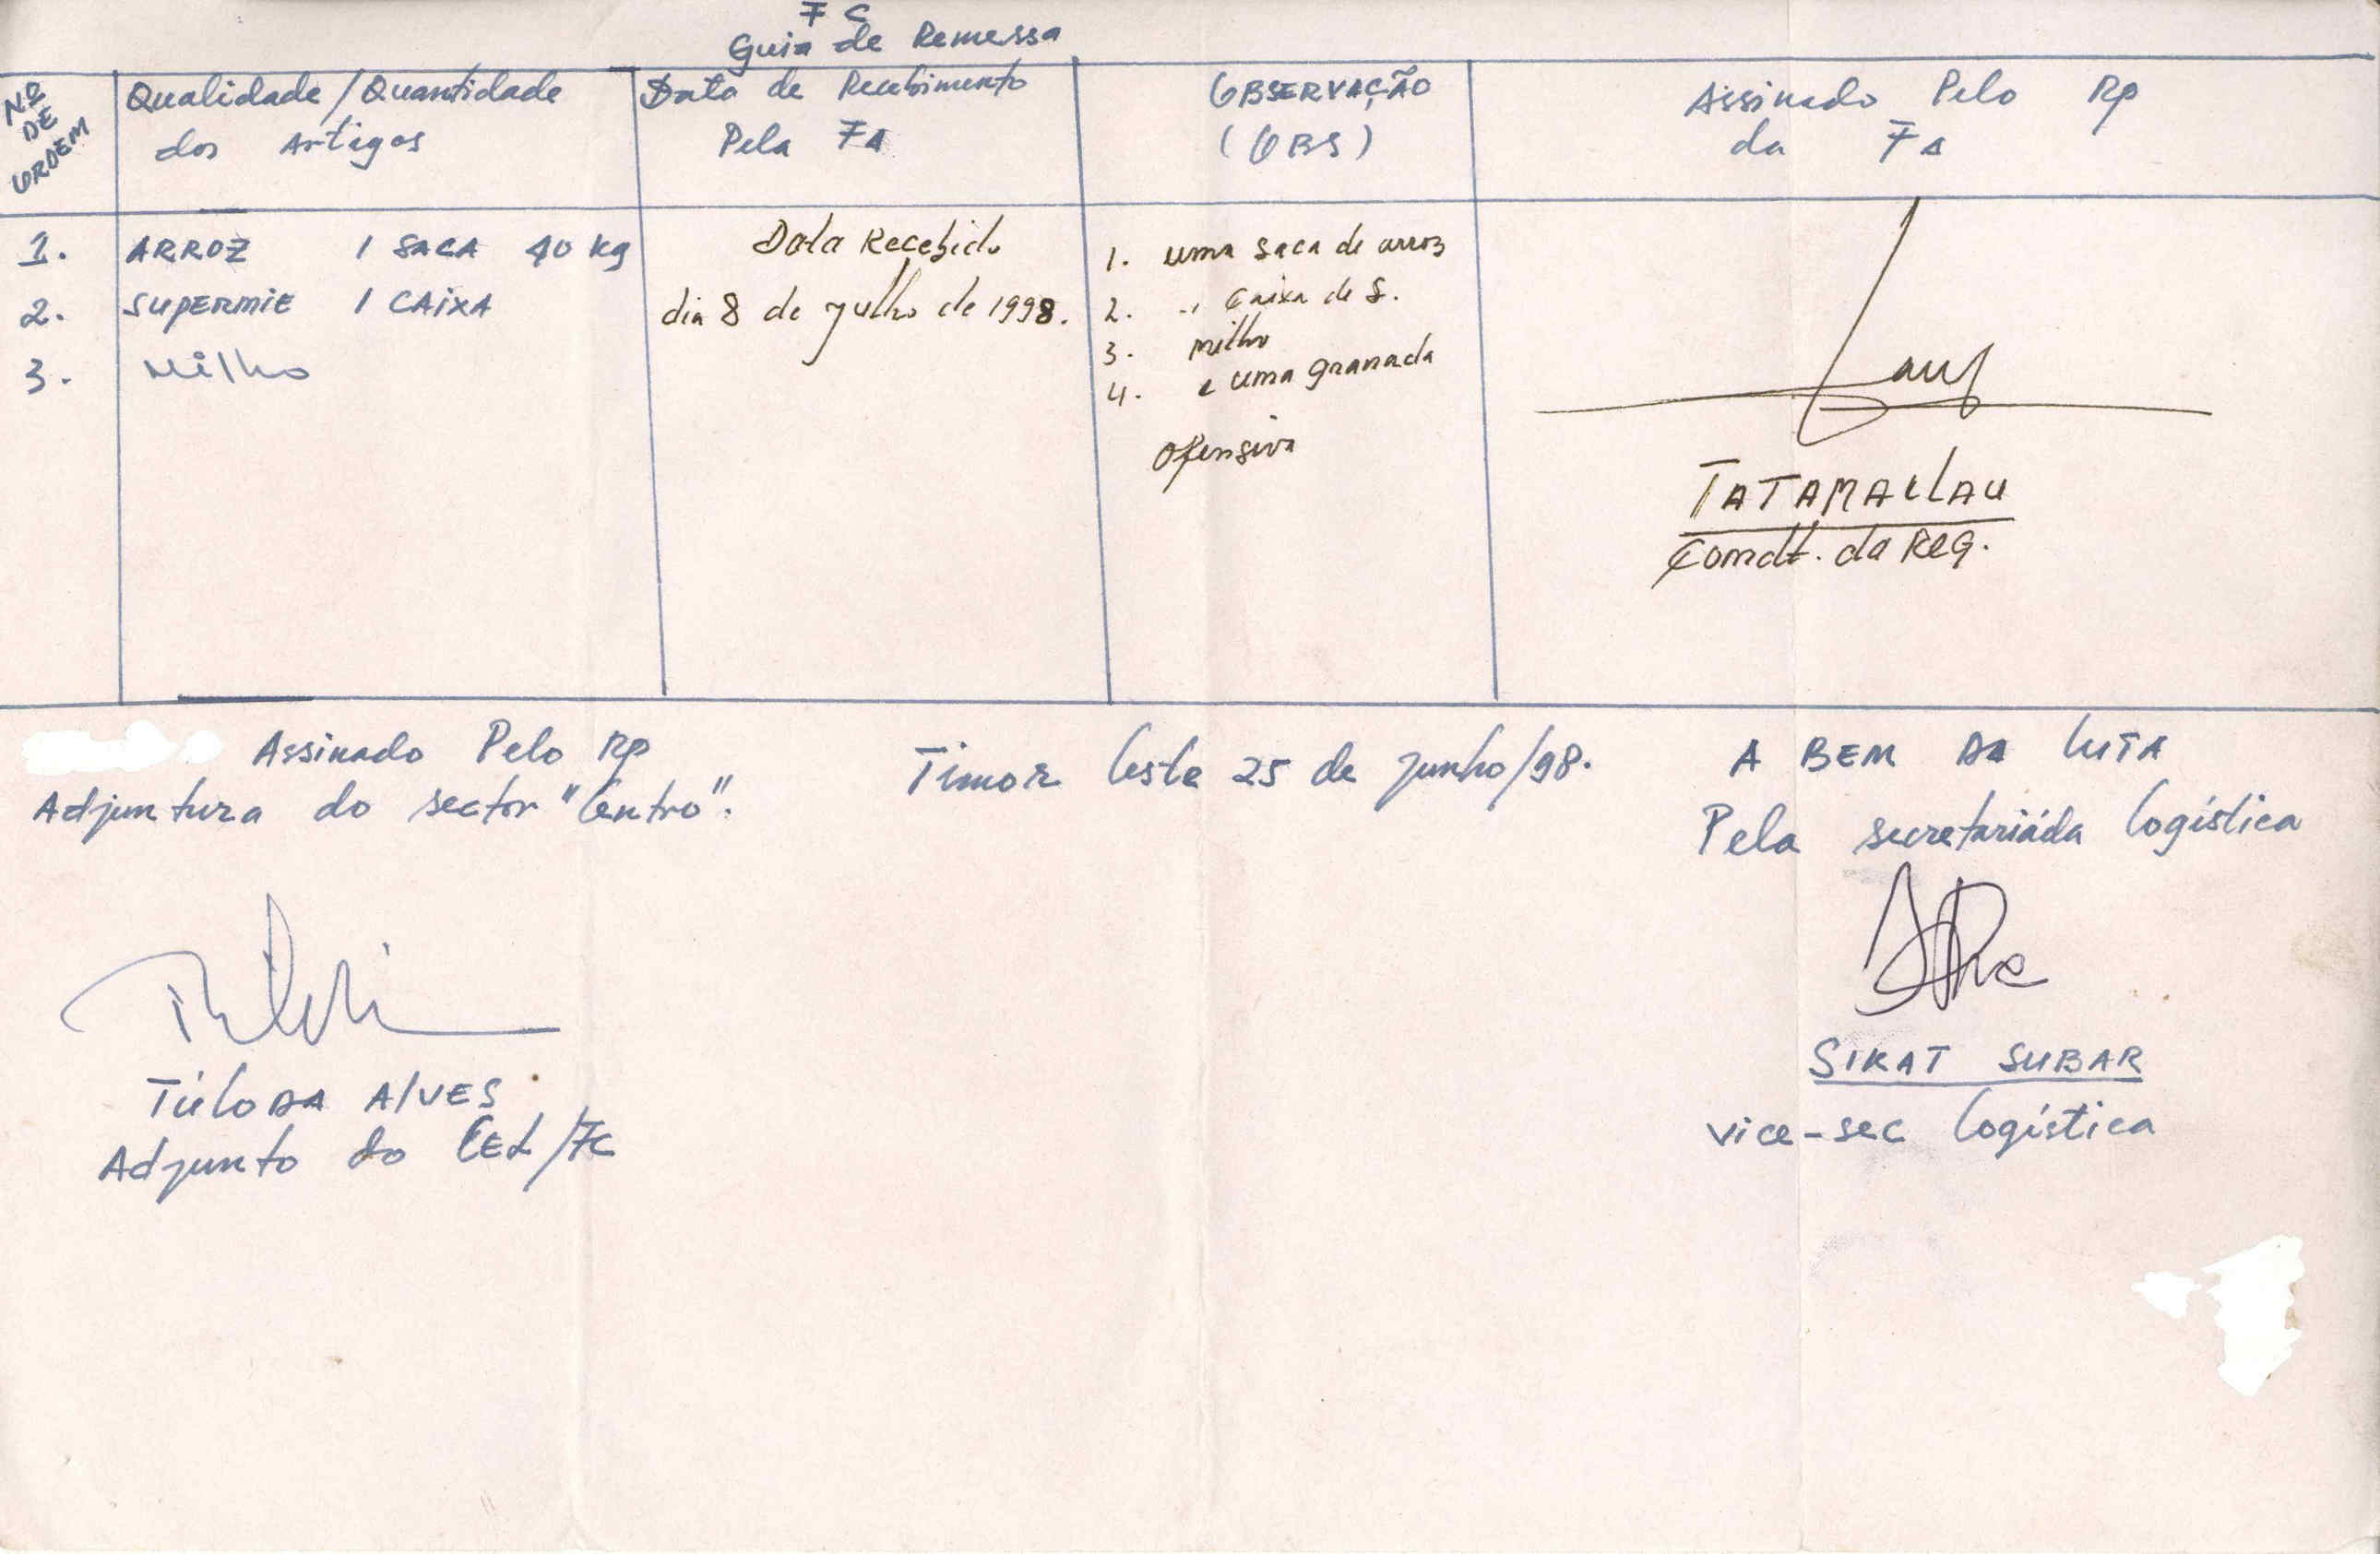 FC
Guia de Remessa
Nº DE ORDEM
Qualidade/Quantidade
dos Artigos
Data de Recebimento
Pela FA
OBSERVAÇÃO
(OBS)
Assinado Pelo Rp
da FA
1. ARROZ 1 SACA 40 kg
2. SUPERMIE 1 CAIXA
3. Milho
Data Recebido
dia 8 de Julho de 1998.
1. uma saca de arroz
2. " Caixa de S.
3. milho
4. e uma granada
Ofensiva
TATAMAILAU
Comdt. da Reg.
Assinado Pelo Rp
Adjuntura do sector "Centro".
Timor Leste 25 de Junho/98.
A BEM DA LUTA
Pela secretariáda Logística
TÚLODA ALVES
Adjunto do CEL/FC
SIKAT SUBAR
Vice-sec Logística